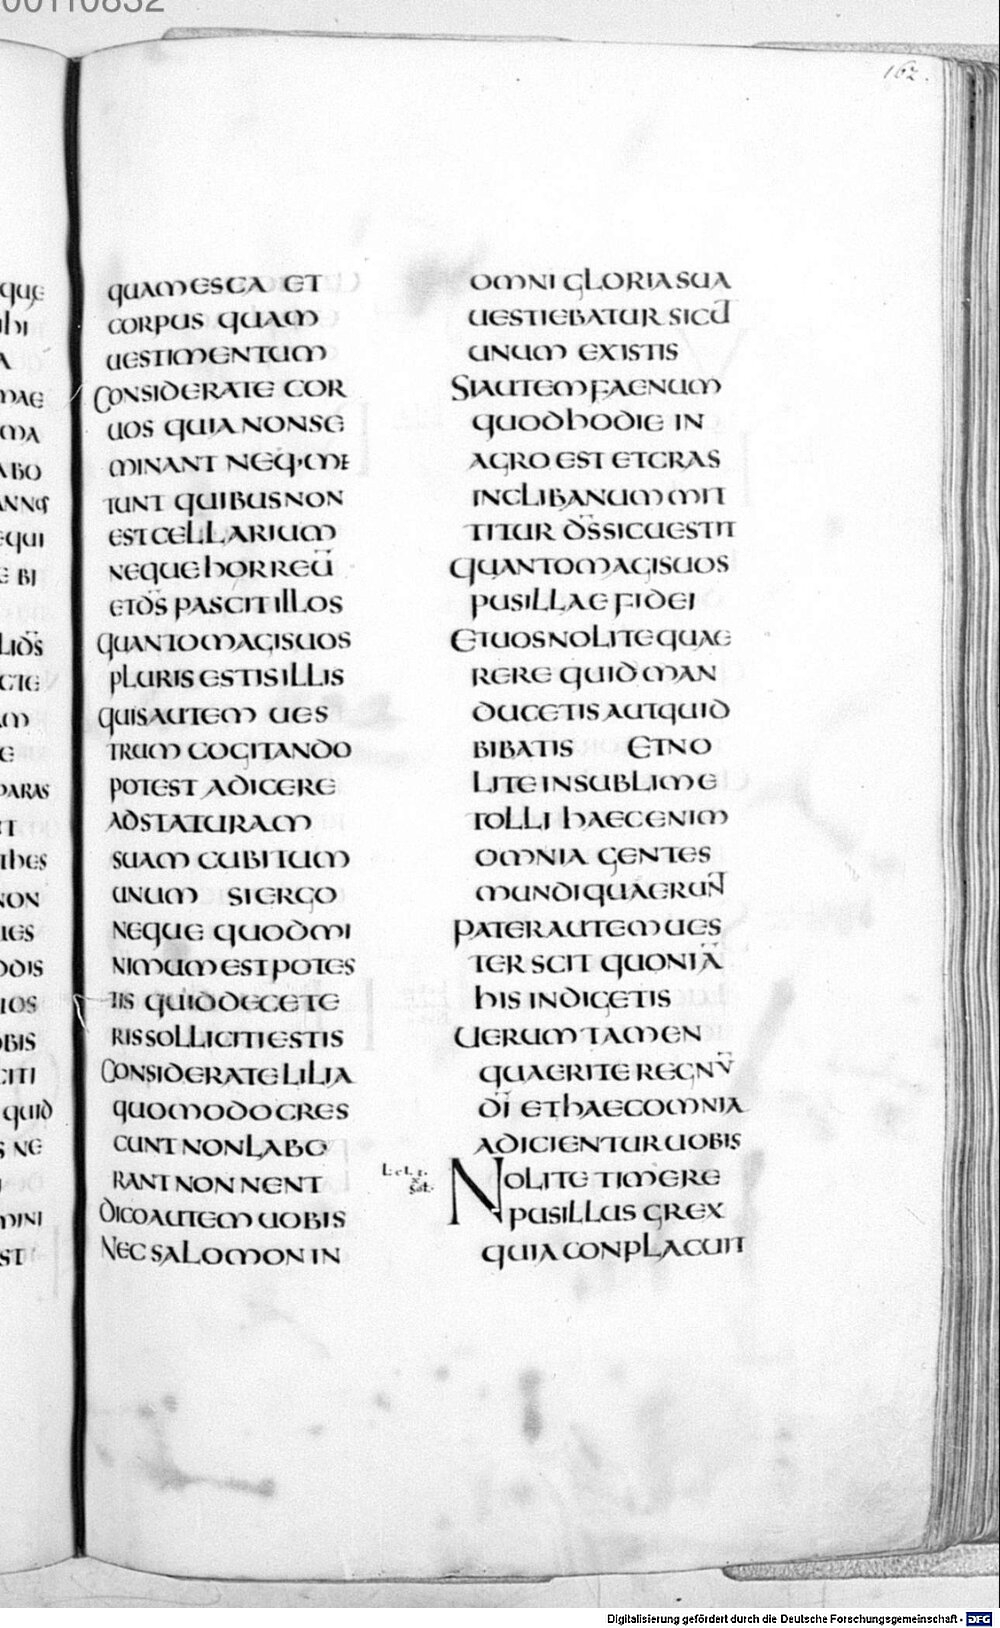 00110832
162.
quam esca et
corpus quam
uestimentum
Considerate cor
uos quia non se
minant neq· me
tunt quibus non
est cellarium
neque horreū
et ds̄ pascit illos
quanto magis uos
pluris estis illis
quis autem ues
trum cogitando
potest adicere
ad staturam
suam cubitum
unum si ergo
neque quod mi
nimum est potes
tis quid de cete
ris solliciti estis
Considerate lilia
quomodo cres
cunt non labo
rant non nent
dico autem uobis
Nec salomon in
omni gloria sua
uestiebatur sicut
unum ex istis
Si autem faenum
quod hodie in
agro est et cras
in clibanum mit
titur ds̄ sic uestit
quanto magis uos
pusillae fidei
Et uos nolite quae
rere quid man
ducetis aut quid
bibatis Et no
lite in sublime
tolli haec enim
omnia gentes
mundi quaerunt
pater autem ues
ter scit quoniā
his indigetis
Uerum tamen
quaerite regnū
dī et haec omnia
adicientur uobis
Nolite timere
pusillus grex
quia conplacuit
que
ma
abo
equi
e bi
m
e
paras
non
ues
ios
obis
citi
quid
s ne
mini
st
Digitalisierung gefördert durch die Deutsche Forschungsgemeinschaft - DFG